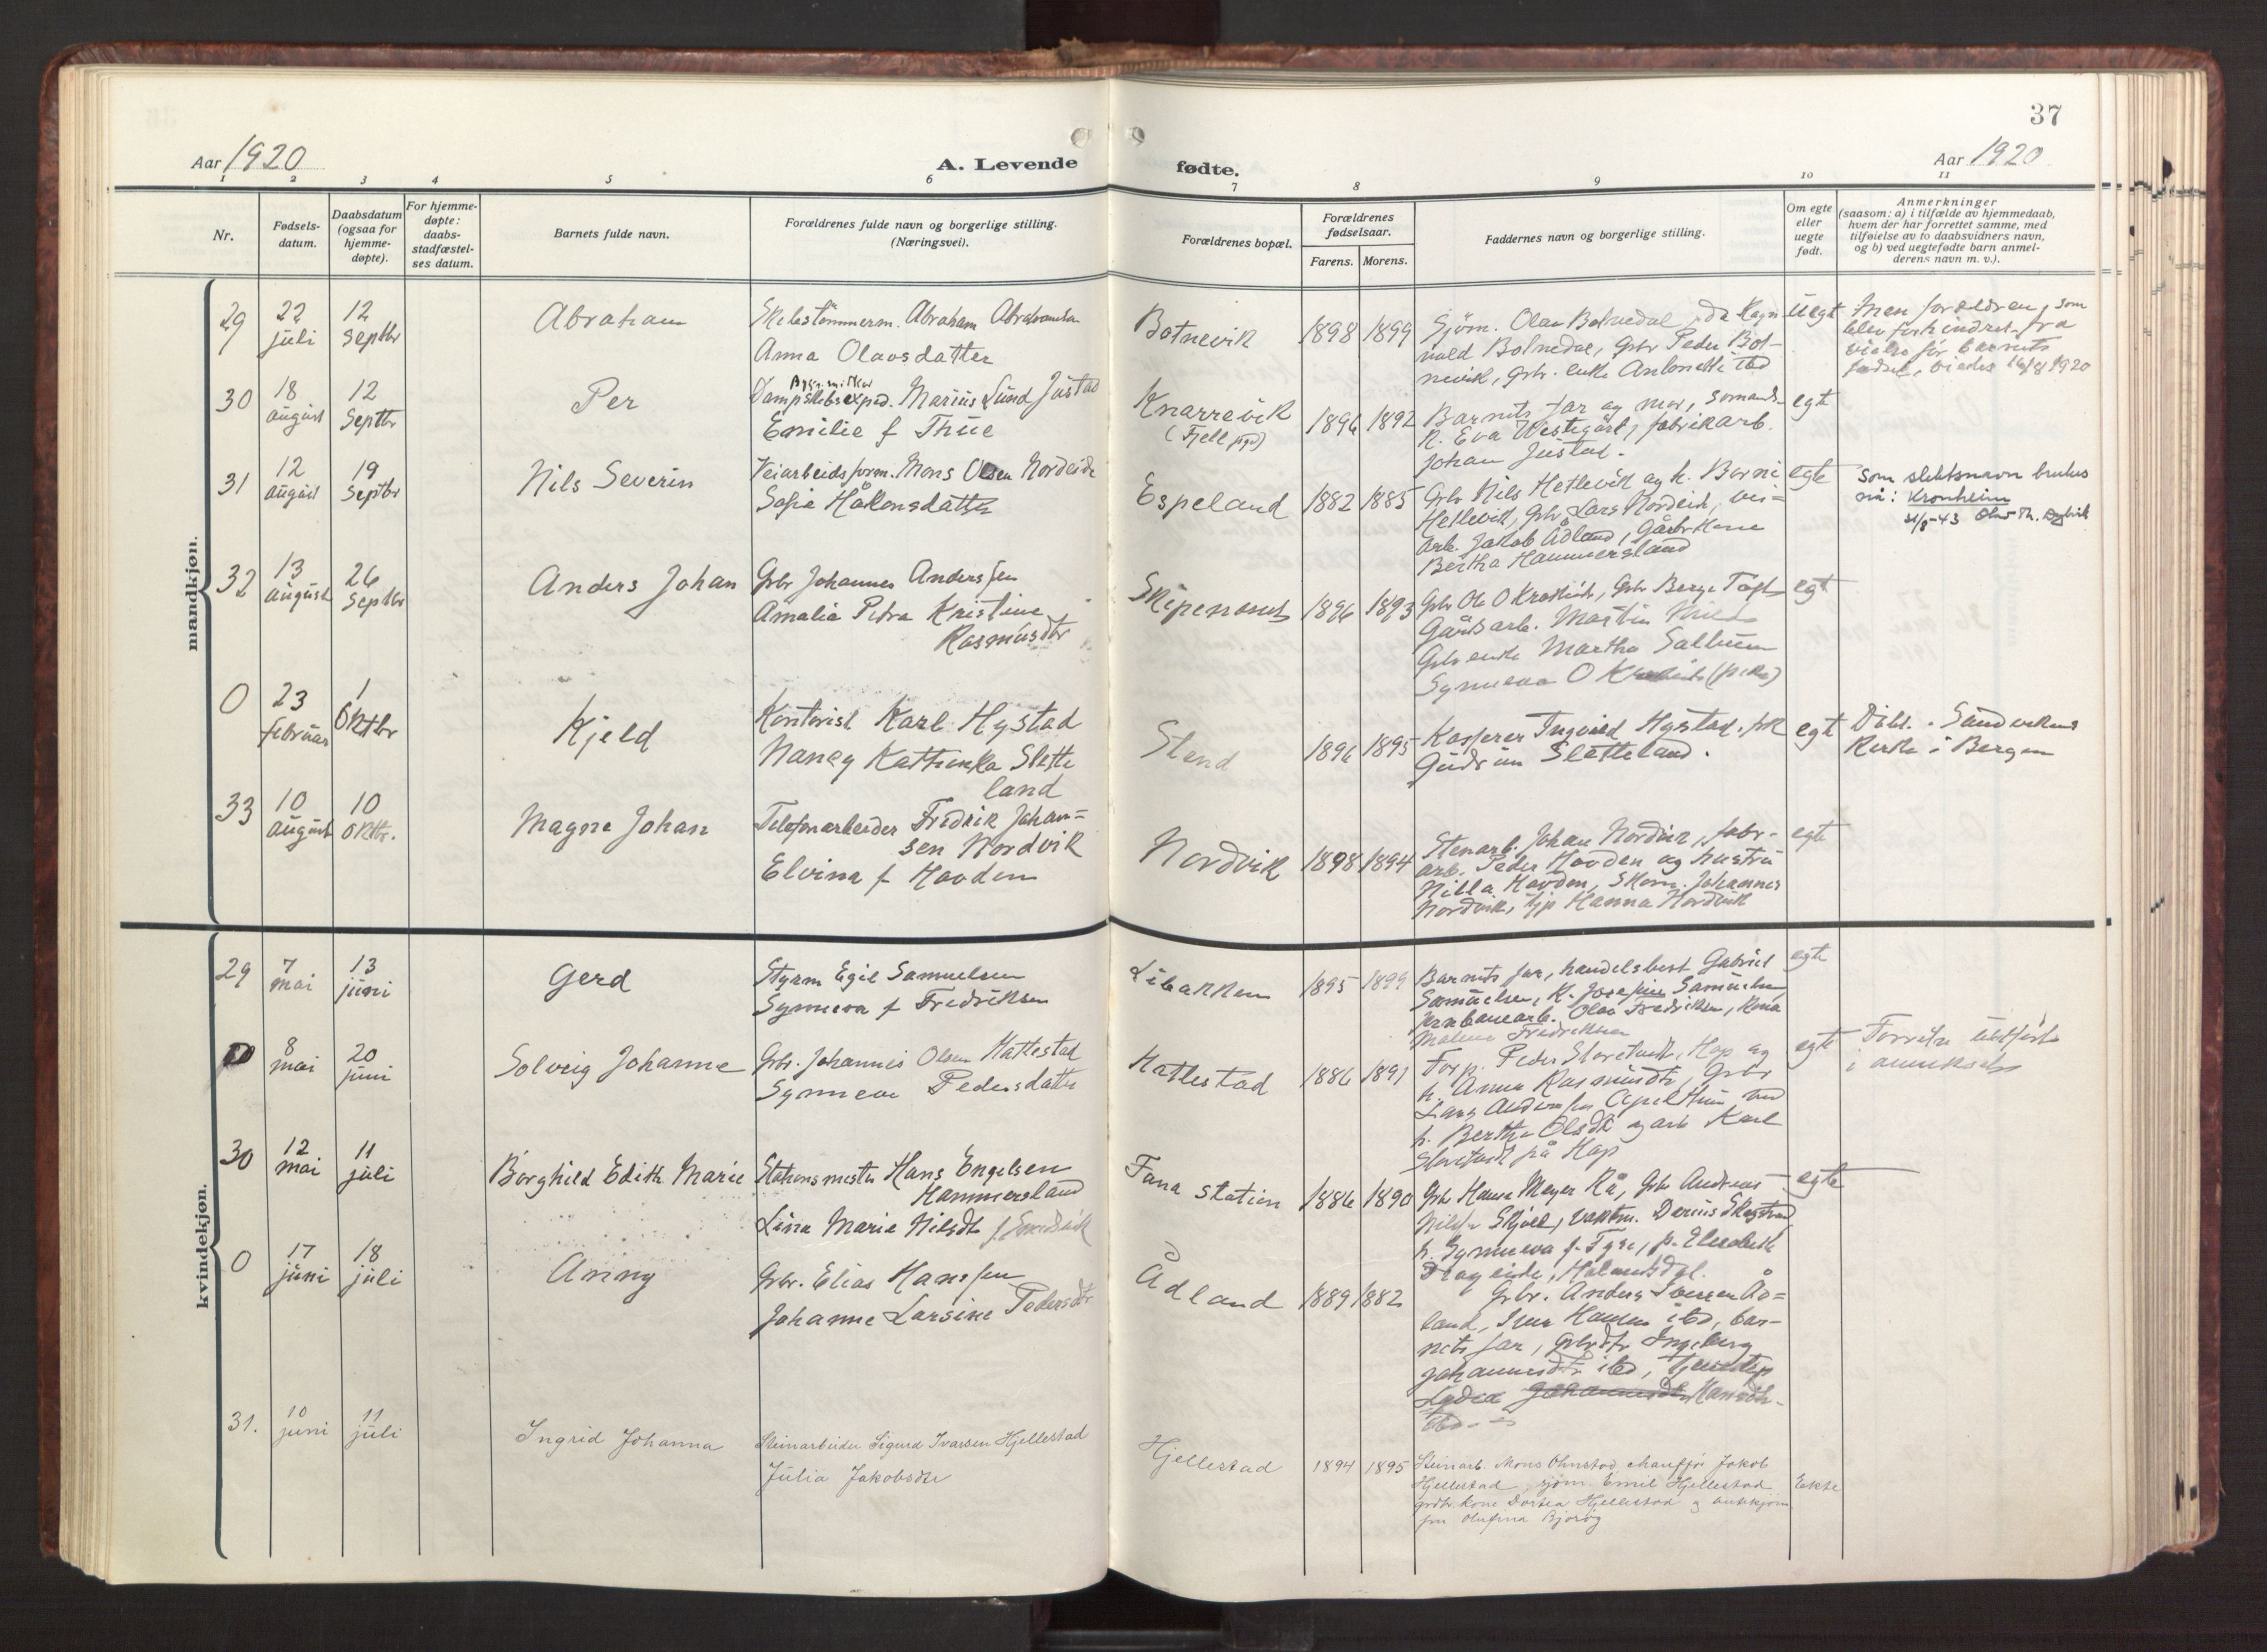 37
Aar 1920
A. Levende
fødte.
Aar 1920
1 2 3 4 5 6 7 8 9 10 11
Nr.
Fødsels-
datum.
Daabsdatum
(ogsaa for
hjemme-
døpte).
For hjemme-
døpte:
daabs-
stadfæstel-
ses datum.
Barnets fulde navn.
Forældrenes fulde navn og borgerlige stilling.
(Næringsvei).
Forældrenes bopæl.
Forældrenes
fødselsaar.
Farens. Morens.
Faddernes navn og borgerlige stilling.
Om egte
eller
uegte
født.
Anmerkninger
(saasom: a) i tilfælde av hjemmedaab,
hvem der har forrettet samme, med
tilføielse av to daabsvidners navn,
og b) ved uegtefødte barn anmel-
derens navn m. v.).
mandkjøn.
29
22
juli
12
Septbr
Abraham
Skibstömmerm. Abraham Abrahamsen
Anna Olavsdatter
Botnevik
1898 1899
Sjöm. Olav Botnedal
vald Botnedal, Gbr Peder Bot-
nevik, Gbr. enke
Uegt
Men forældrene, som
blev forhindret fra
vielse før barnets
fødsel, viedes 1920
30
18
august
12
Septbr
Per
Dampskibsexped. Marius Lund Justad
Emilie f Thue
Knarrevik
(Fjell pgd)
1896 1892
Barnets far og mor,
Eva Westegård, fabrikarb.
Johan Justad.
egte
31
12
august
19
Septbr
Nils Severin
Veiarbeidsform. Mons Olsen Nordeide
Sofie Håkonsdatter
Espeland
1882 1885
Gbr Nils Hetlevik og h. Borni
Hetlevik, Gbr Lars Nordeide, vei=
arb. Jakob Ådland, Gårdbr. kone
Bertha Hammersland
egte
Som slektsnavn brukes
nå: Kronheim
32
13
august
26
Septbr
Anders Johan
Gbr Johannes Anderssen
Amalia Petra Kristine
Rasmusdtr
Skipenæs
1896 1893
Gbr Ole O
Gårdsarb. Martin
Gbr enke Martha
Synneva O
egt
0
23
februar
1
Oktbr
Kjeld
Kontorist Karl Hystad
Nancy Kathinka Slette
land
Stend
1896 1895
Kasserer Ingvald Hystad, frk
Gudrun Sletteland.
egt
Döbt i Sandvikens
Kirke i Bergen
33
10
august
10
Oktbr.
Magne Johan
Telefonarbeider Fredrik Johan=
sen Nordvik
Elvina f Hovden
Nordvik
1898 1894
Stenarb. Johan Nordvik, fabr-
arb. Peder Hovden og hustru
Nilla Hovden, Skom. Johannes
Nordvik, tjp Hanna Nordvik
egte
kvindekjøn.
29
7
mai
13
juni
Gerd
Styrm Egil Samuelsen
Synneva f Fredriksen
Libakken
1895 1899
Barnets far, handelsbest. Gabriel
Samuelsen, K. Josefine Samuelsen
jernbanearb. Olav Fredriksen, kona
Malene Fredriksen
egte
8
mai
20
juni
Solveig Johanne
Gbr. Johannes Olsen Hattestad
Synneva Pedersdatter
Hattestad
1886 1891
Forp. Peder Storetveit, Hop og
h. Anna Rasmusdtr, Gbr
Lars Anderssen Apeltun og
h. Bertha Olsdtr og arb Karl
Storetveit på Hop
egte
30
12
mai
11
juli
Borghild Edith Marie
Stationsmester Hans Engelsen
Hammersland
Lina Marie Nilsdtr
Fana station
1886 1890
Gbr Hans Meyer Rå, Gbr Andreas
Nilsen Skjold,
h. Synneva f. p. Elisabeth
egte
0
17
juni
18
juli
Anny
Gbr. Elias Hanssen
Johanne Larsine Pedersdtr
Ådland
1889 1882
Gbr. Anders Iversen Åd=
land, Hansen ibd, bar-
nets far, Gbrdtr Ingeborg
Johannesdtr ibd,
Lydia Johannesdtr Hansdtr
ibd
31.
10
juni
11
juli
Ingrid Johanna
Steinarbeider Sigurd Ivarsen Hjellestad
Julia Jakobsdtr
Hjellestad
1894 1895
Steinarb. Mons Ohnstad, chauffør Jakob
Hjellestad, sjöm. Emil Hjellestad
grdbr. kone Dortea Hjellestad og
Olufina
Eekte